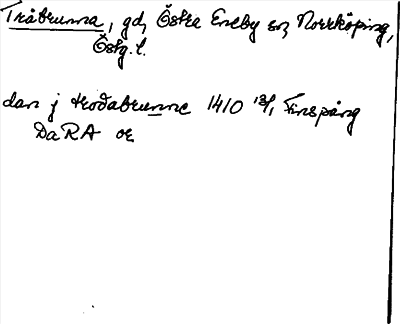 Tråbrunna, gd, Östra Eneby sn, Norrköping,
Östg. l.
dan j trodabrunne 1410 13/1 Finspång
DaRA or